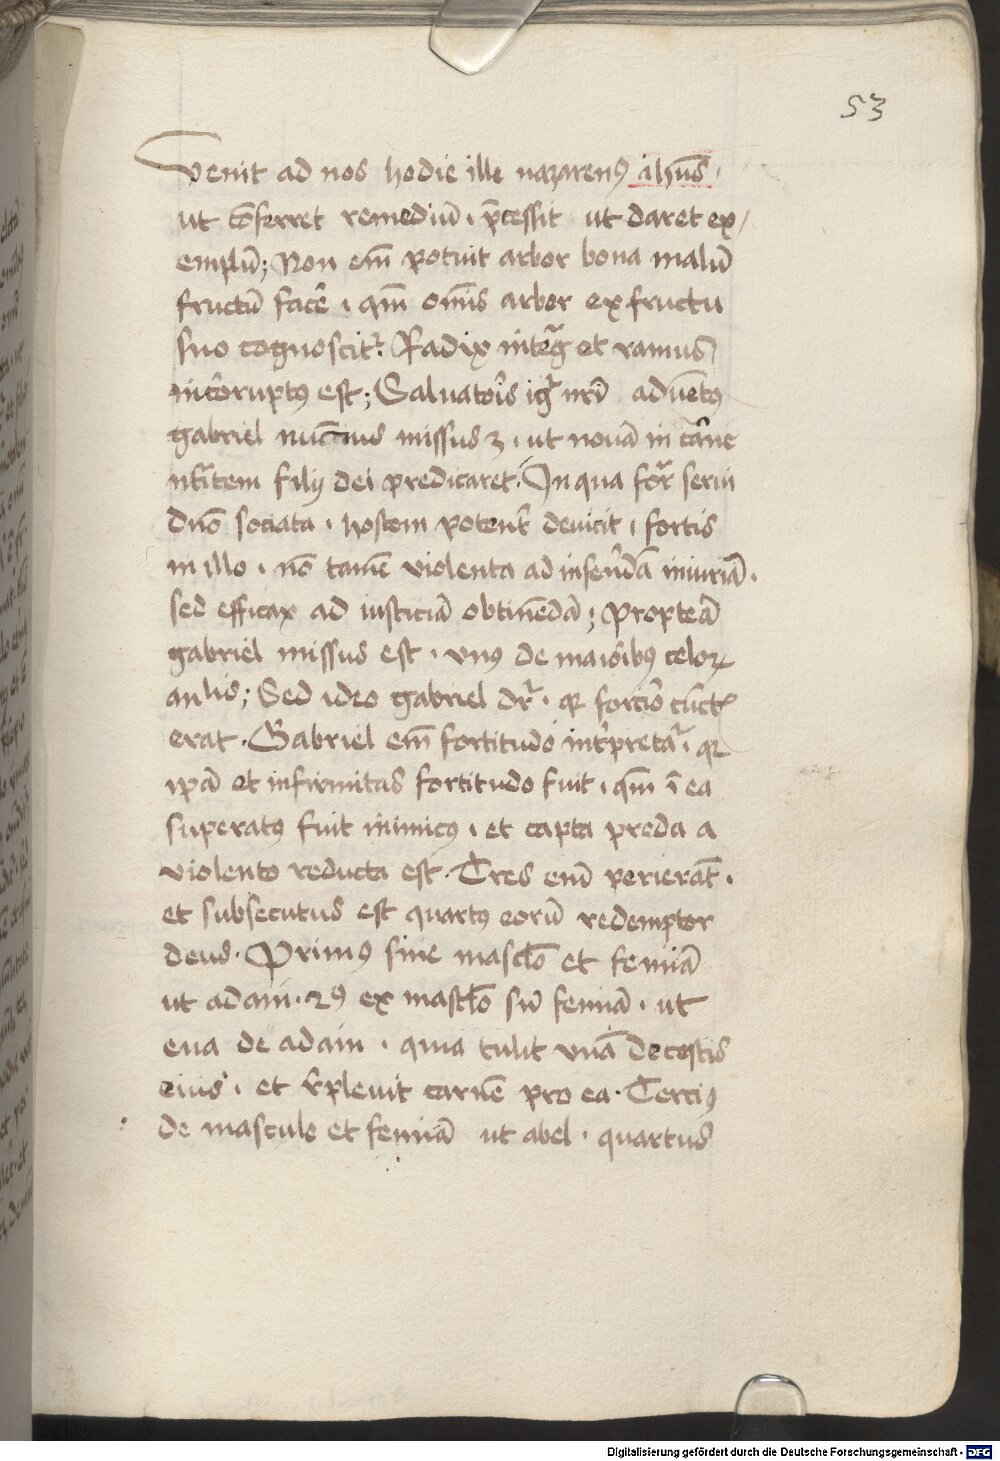 53
Venit ad nos hodie ille nazarenꝰ ihūs ·
ut cōferret remediū · p̄cessit ut daret ex/
emplū; Non em̄ potuit arbor bona malū
fructū facē · qm̄ om̄is arbor ex fructu
suo cognoscit᷑. Radix integᷓ et ramus
incōruptꝰ est; Saluatoris igͥ nr̄i aduētꝰ
gabriel nuncius missus ʒ · ut nouā in carne
nt̄item filij dei predicaret. In qua for᷑ serui
dn̄o sociata · hostem potent᷑ deuicit · fortis
in illo · nō tamē violenta ad inferēdā iniuriā ·
sed efficax ad iusticiā obtinēdā; Proptea᷑
gabriel missus est · vnꝰ de maioribꝰ celoꝝ
aulis; Sed ideo gabriel dr᷑ · qꝛ fortiōr cūct᷑
erat · Gabriel em̄ fortitudo int᷑pretat᷑ · qꝛ
ip̄a et infirmitas fortitudo fuit · qm̄ ī ea
superatꝰ fuit inimicꝰ · et capta preda a
violento reducta est. Tres enī perierāt ·
et subsecutus est quartꝰ eorū redemptor
deus. Primꝰ sine mascl̄o et femīa
ut adam · 2ꝰ ex mascl̄o sn̄ femīa · ut
eua de adam · quia tulit vnā de costis
eius · et r᷑pleuit carnē pro ea. Tercius
de masculo et femīa ut abel · quartus
Digitalisierung gefördert durch die Deutsche Forschungsgemeinschaft - DFG